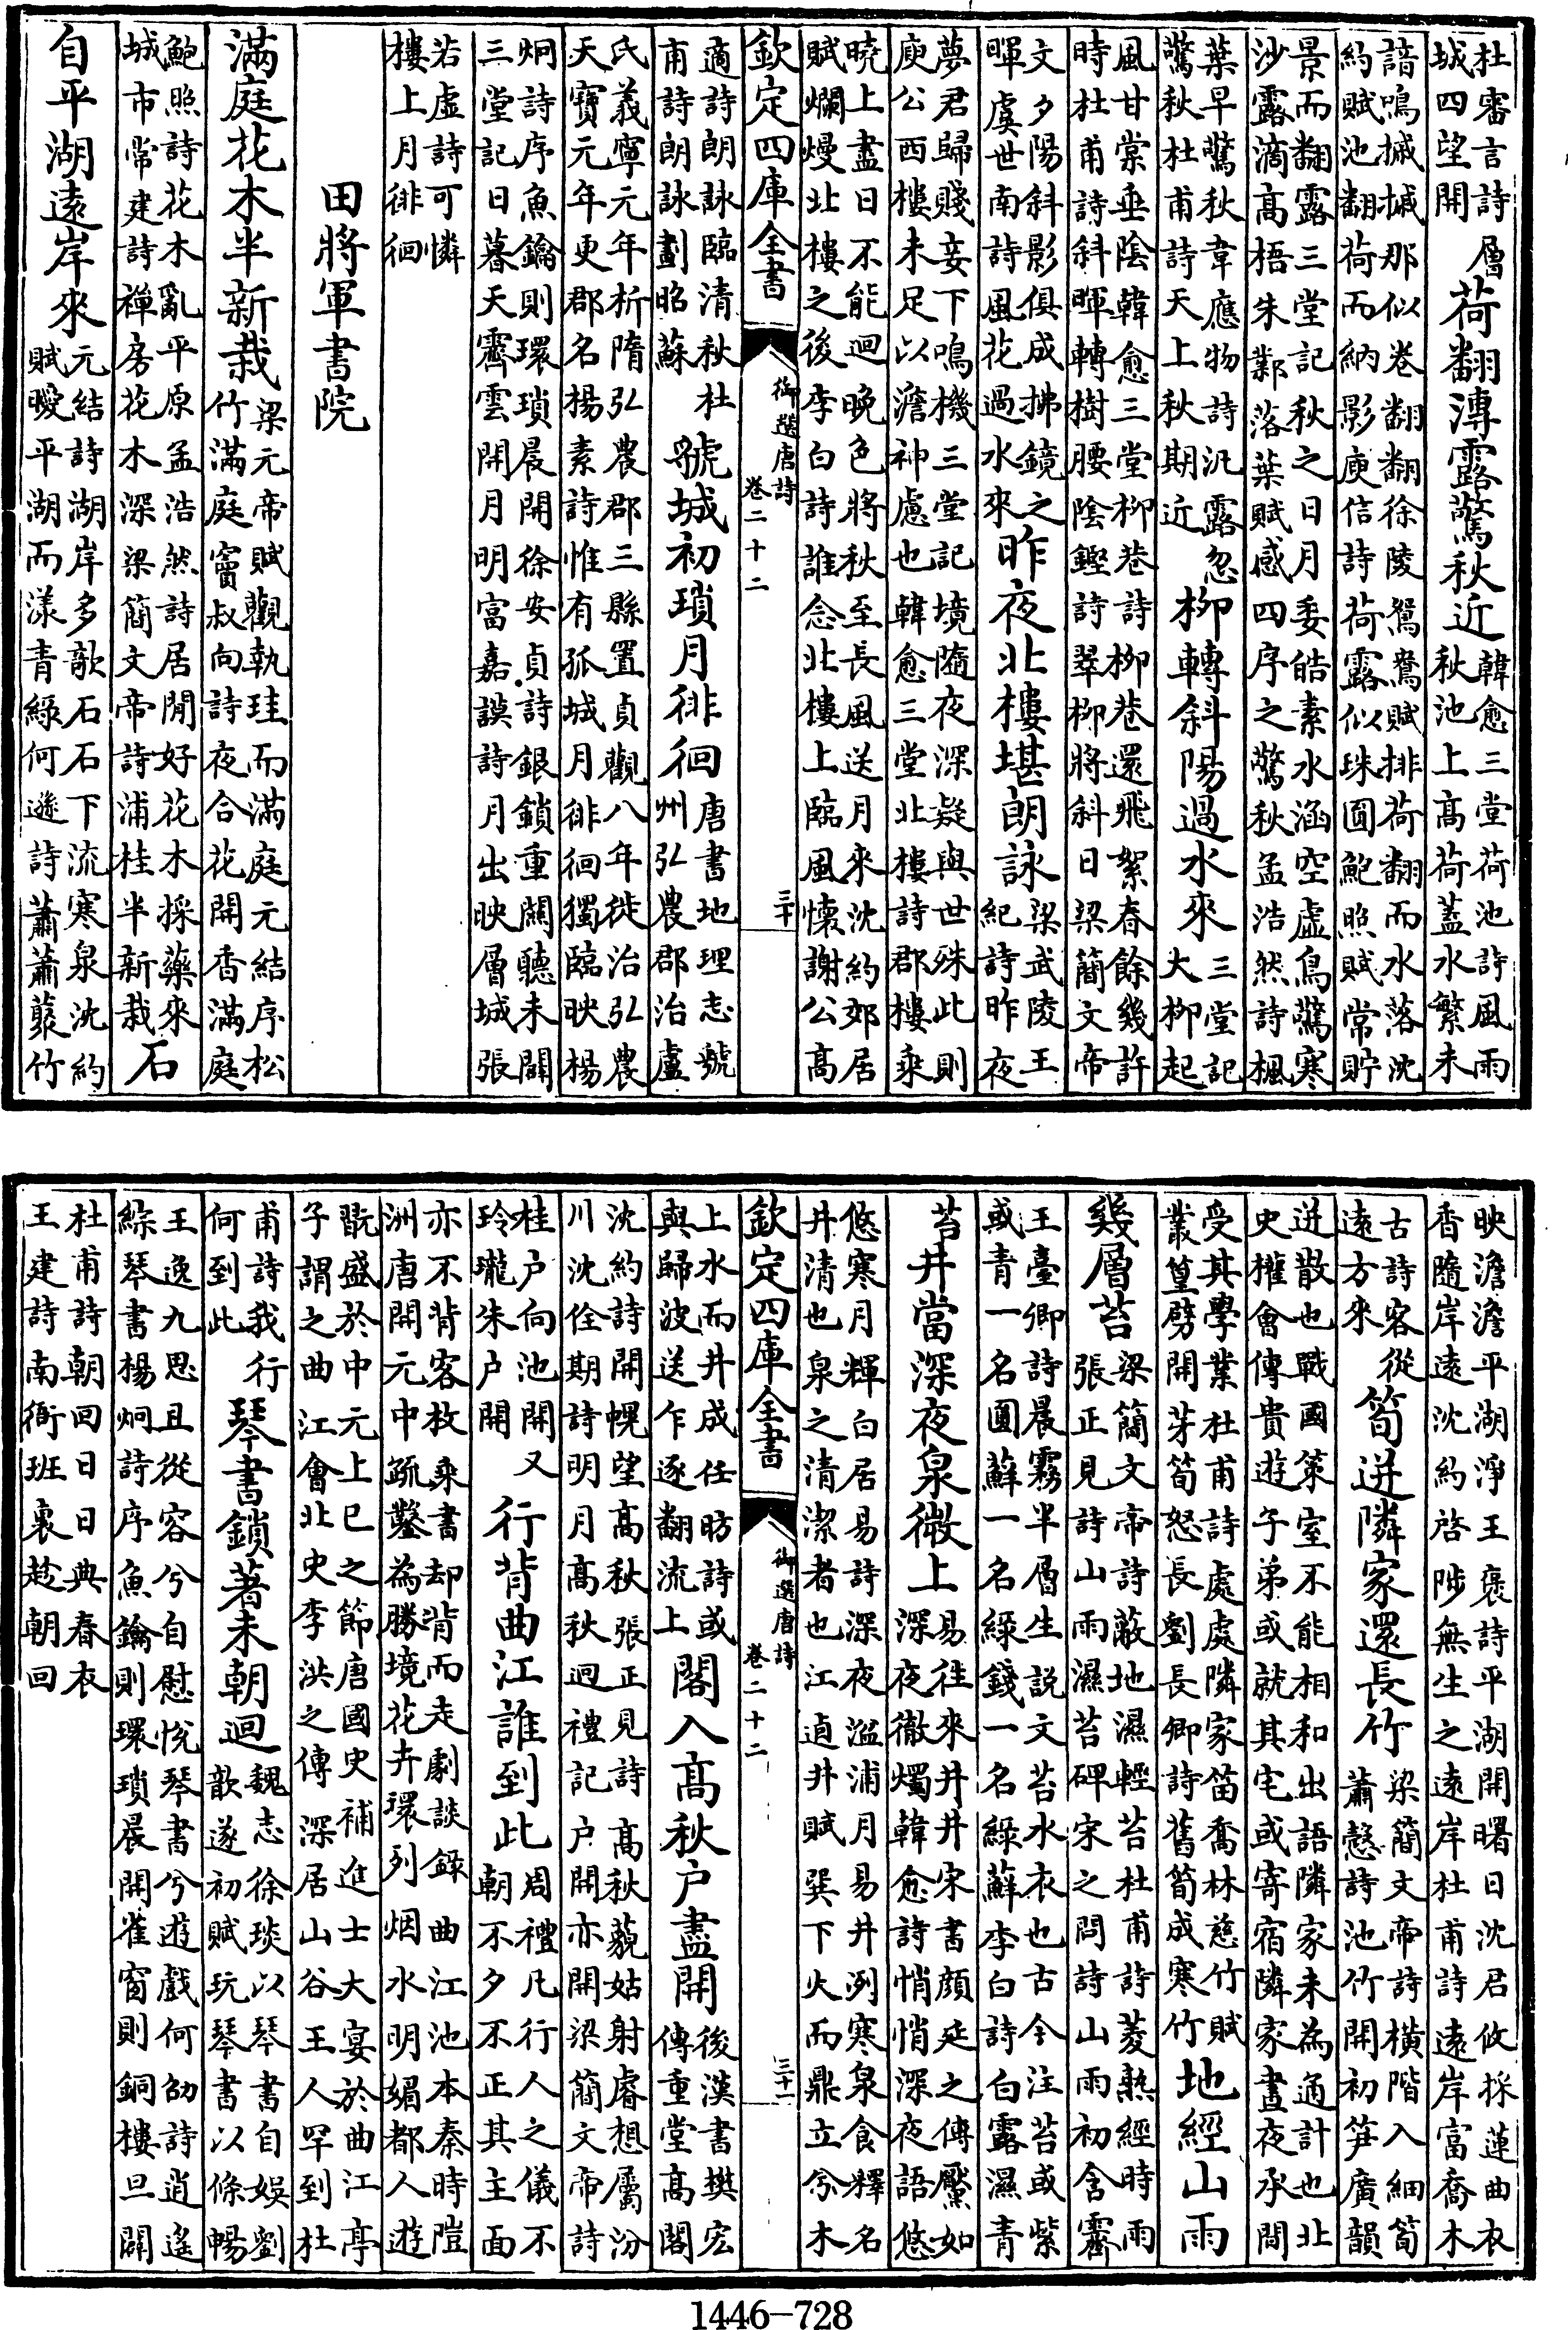 杜審言詩層
城四望開
荷翻漙露驚秋近
韓愈三堂荷池詩風雨
秋池上高荷蓋水繁未
諳鳴摵摵那似卷翻翻徐陵鴛鴦賦排荷翻而水落沈
約賦池翻荷而納影庾信詩荷露似珠圓鮑照賦常貯
景而翻露三堂記秋之日月委皓素水涵空虛鳥驚寒
沙露滴高梧朱鄴落葉賦感四序之驚秋孟浩然詩楓
葉早驚秋韋應物詩汎露忽
驚秋杜甫詩天上秋期近
柳轉斜陽過水來
三堂記
大柳起
風甘棠垂陰韓愈三堂柳巷詩柳巷還飛絮春餘幾許
時杜甫詩斜暉轉樹腰陰鏗詩翠柳將斜日梁簡文帝
文夕陽斜影俱成拂鏡之
暉虞世南詩風花過水來
昨夜北樓堪朗詠
梁武陵王
紀詩昨夜
夢君歸賤妾下鳴機三堂記境隨夜深疑與世殊此則
庾公西樓未足以澹神慮也韓愈三堂北樓詩郡樓乘
曉上盡日不能迴晚色將秋至長風送月來沈約郊居
賦爛熳北樓之後李白詩誰念北樓上臨風懷謝公高
欽定四庫全書
御選唐詩
卷二十二
三十
適詩朗詠臨清秋杜
甫詩朗詠劃昭蘇
虢城初瑣月徘徊
唐書地理志虢
州弘農郡治盧
氏義寧元年析隋弘農郡三縣置貞觀八年徙治弘農
天寶元年更郡名楊素詩惟有孤城月徘徊獨臨映楊
炯詩序魚鑰則環瑣晨開徐安貞詩銀鎖重關聽未闢
三堂記日暮天霽雲開月明富嘉謨詩月出映層城張
若虛詩可憐
樓上月徘徊
田將軍書院
滿庭花木半新栽
梁元帝賦觀執珪而滿庭元結序松
竹滿庭竇叔向詩夜合花開香滿庭
鮑照詩花木亂平原孟浩然詩居閒好花木採藥來
城市常建詩禪房花木深梁簡文帝詩浦桂半新栽
石
自平湖遠岸來
元結詩湖岸多欹石石下流寒泉沈約
賦曖平湖而漾青綠何遜詩蕭蕭藂竹
映澹澹平湖淨王褒詩平湖開曙日沈君攸採蓮曲衣
香隨岸遠沈約啓陟無生之遠岸杜甫詩遠岸富喬木
古詩客從
遠方來
筍迸隣家還長竹
梁簡文帝詩橫階入細筍
蕭慤詩池竹開初笋廣韻
迸散也戰國策室不能相和出語隣家未為通計也北
史權會傳貴遊子弟或就其宅或寄宿隣家晝夜承間
受其學業杜甫詩處處隣家笛喬林慈竹賦
叢篁劈開芽筍怒長劉長卿詩舊筍成寒竹
地經山雨
幾層苔
梁簡文帝詩蔽地濕輕苔杜甫詩菱熟經時雨
張正見詩山雨濕苔碑宋之問詩山雨初含霽
王臺卿詩晨霧半層生説文苔水衣也古今注苔或紫
或青一名圓蘚一名綠錢一名綠蘚李白詩白露濕青
苔
井當深夜泉微上
易往來井井宋書顔延之傳黶如
深夜徹燭韓愈詩悄悄深夜語悠
悠寒月輝白居易詩深夜湓浦月易井洌寒泉食釋名
井清也泉之清潔者也江逌井賦巽下火而鼎立兮木
欽定四庫全書
御選唐詩
卷二十二
三十一
上水而井成任昉詩或
與歸波送乍逐翻流上
閣入髙秋户盡開
後漢書樊宏
傳重堂高閣
沈約詩開幌望高秋張正見詩高秋藐姑射睿想屬汾
川沈佺期詩明月高秋迥禮記户開亦開梁簡文帝詩
桂户向池開又
玲瓏朱户開
行背曲江誰到此
周禮凡行人之儀不
朝不夕不正其主面
亦不背客枚乘書却背而走劇談録曲江池本秦時隑
洲唐開元中疏鑿為勝境花卉環列烟水明媚都人遊
翫盛於中元上巳之節唐國史補進士大宴於曲江亭
子謂之曲江會北史李洪之傳深居山谷王人罕到杜
甫詩我行
何到此
琴書鎖著未朝迴
魏志徐琰以琴書自娛劉
歆遂初賦玩琴書以條暢
王逸九思且從容兮自慰悅琴書兮遊戲何劭詩逍遙
綜琴書楊炯詩序魚鑰則環瑣晨開雀窗則銅樓旦闢
杜甫詩朝回日日典春衣
王建詩南衙班裏趁朝回
1446-728